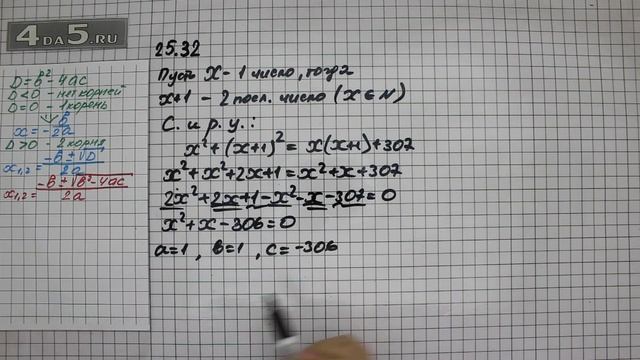 4DA5.RU
D=b²-4ac
D<0 - нет корней
D=0 - 1 корень
x=-b/2a
D>0 - 2 корня
x₁,₂=(-b±√D)/2a
x₁,₂=(-b±√b²-4ac)/2a
25.32
Пусть x - 1 число, тогда
x+1 - 2 посл. число (x∈N)
С. и р. у.:
x²+(x+1)²=x(x+1)+307
x²+x²+2x+1=x²+x+307
2x²+2x+1-x²-x-307=0
x²+x-306=0
a=1, b=1, c=-306